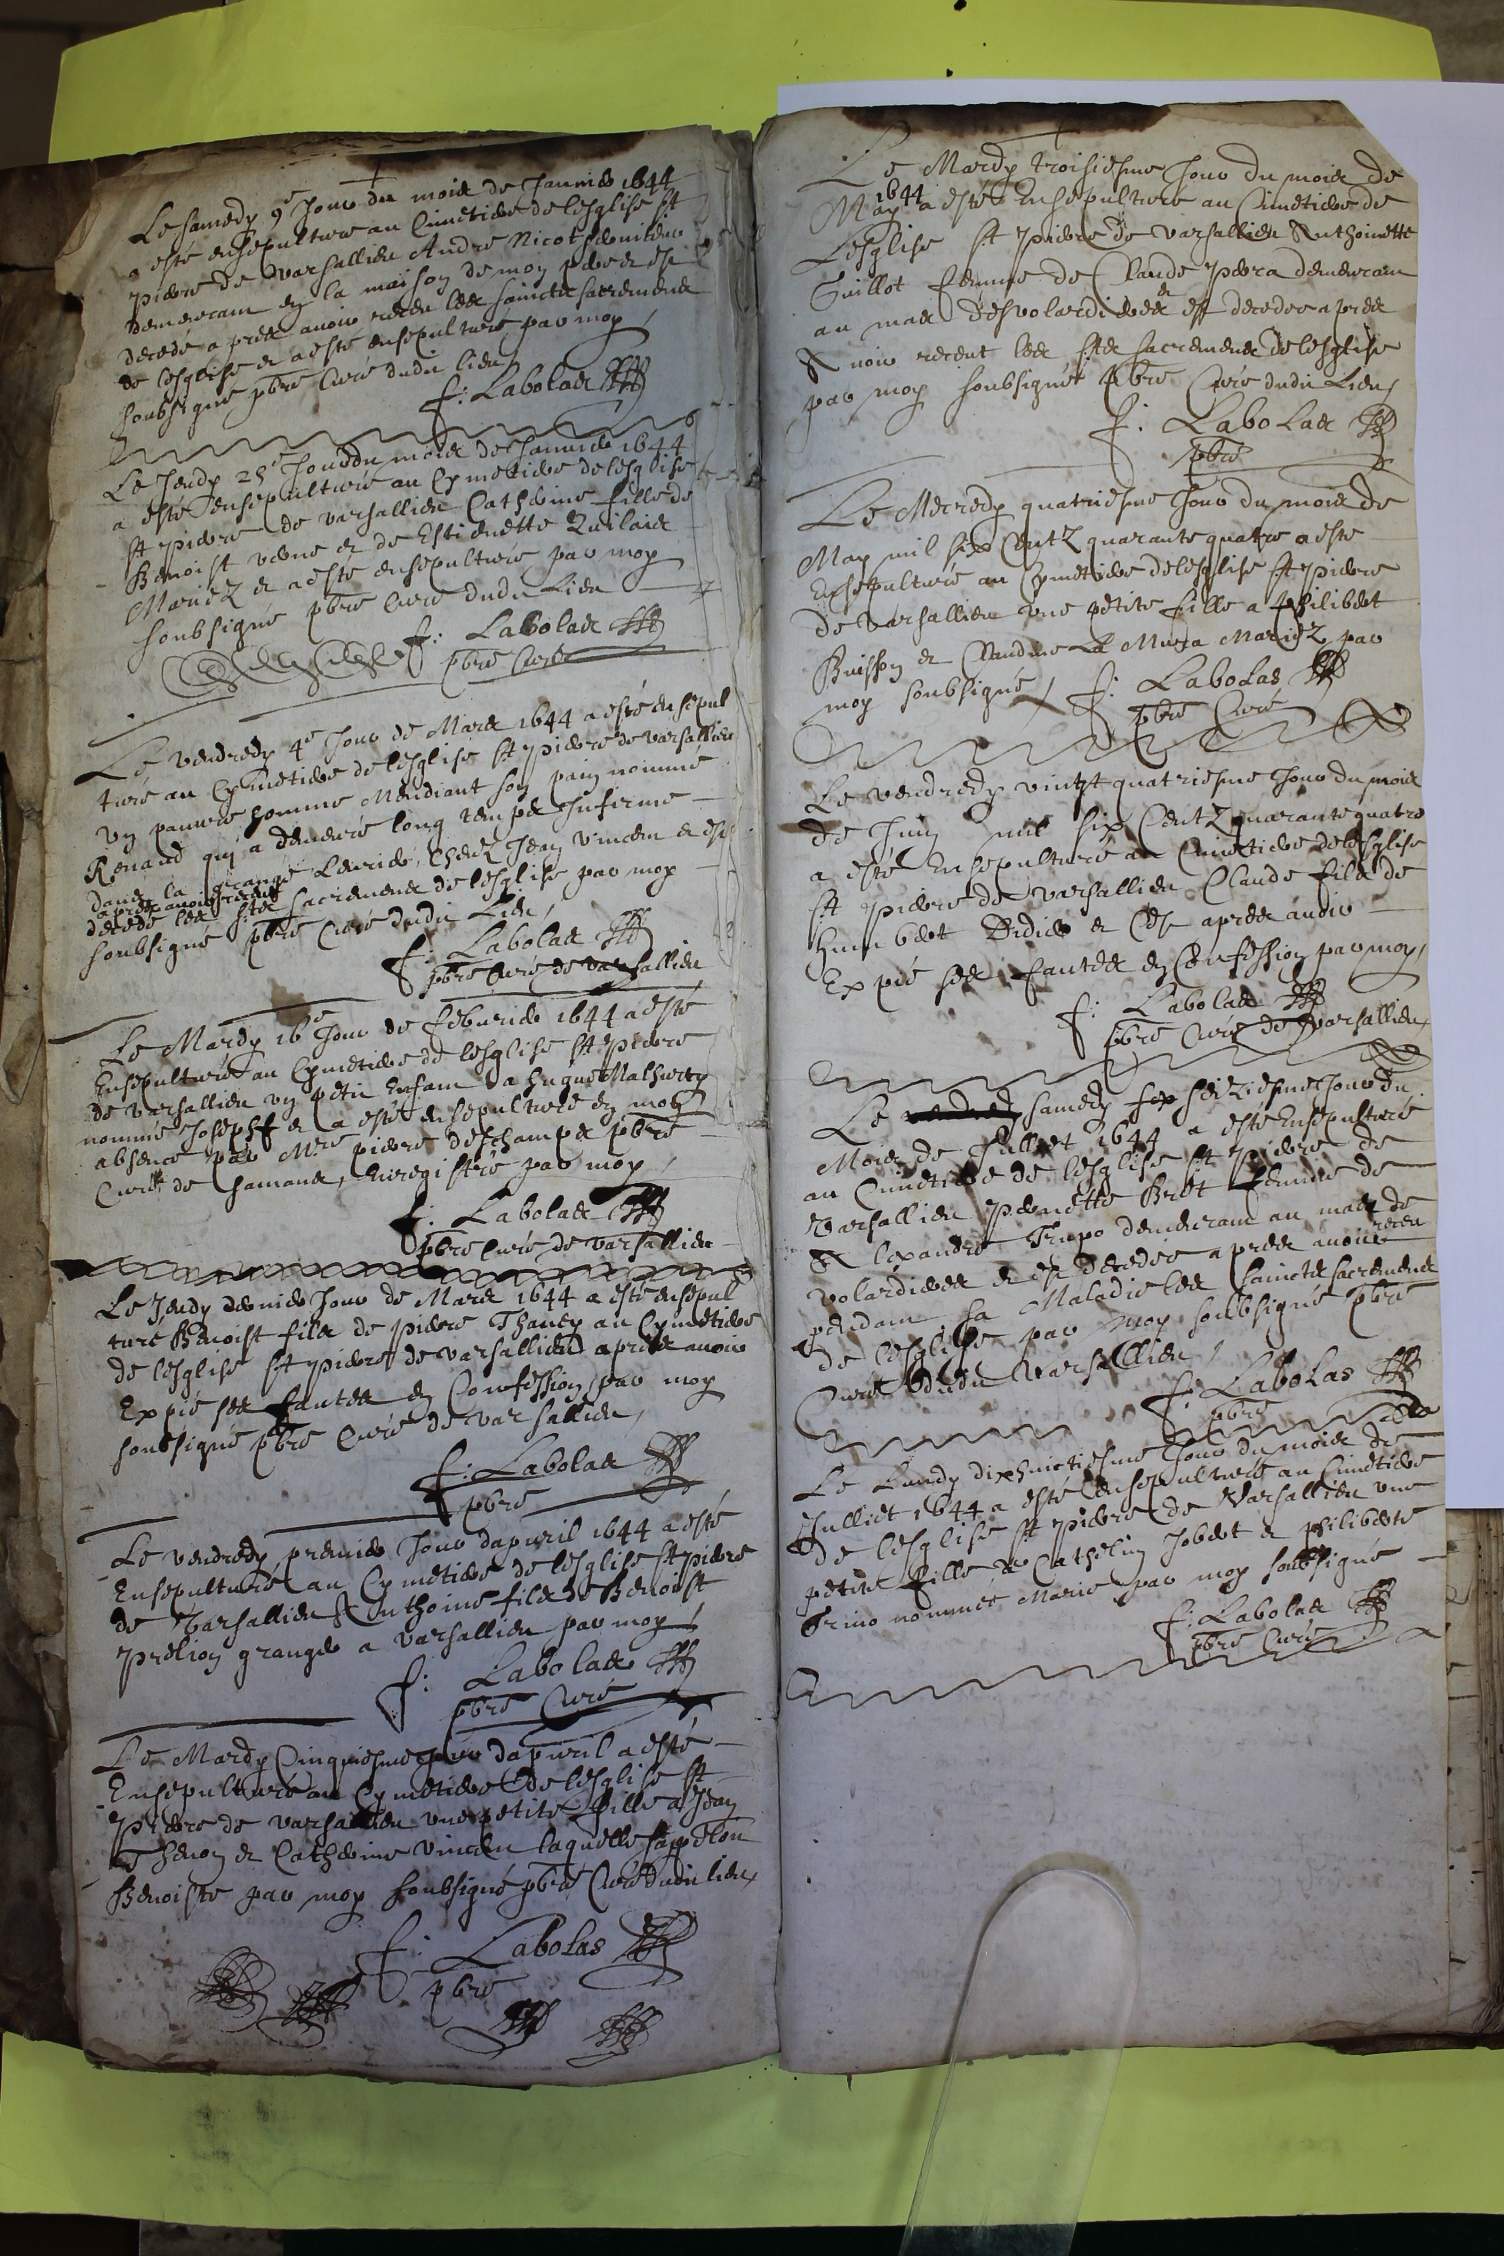 Le samedy 9e Jour du mois de Janvier 1644
a esté ensepulturé au Cimetiere de lesglise st
pierre de varsallieu André Nicot serviteur
demeurant en la maison de mon pere et est
decedé apres avoir receu les saincts sacrements
de lesglise et a esté ensepulturé par moy
soubsigné pbre Curé dudit lieu
f: Labolas
Le Jeudy 28e Jour du mois de Janvier 1644
a esté ensepulturé au Cymetiere de lesglise
st pierre de varsallieu Catherine fille de
Benoist et de Estienette
Mariéz et a esté ensepulturé par moy
soubsigné pbre Curé dudit Lieu
f: Labolas
pbre Curé
Le vendredy 4e Jour de Mars 1644 a esté ensepul
turé au Cymetiere de lesglise st pierre de varsallieu
un pauvre homme Mendiant son pain nommé
Renaud qui a demeuré long temps Infirme
dans la grange chez Jean vincent et est
apres avoir receu
decedé les sts sacrements de lesglise par moy
soubsigné pbre Curé dudit Lieu,
f: Labolas
pbre Curé de varsallieu
Le Mardy 16e Jour de feburier 1644 a esté
Ensepulturé au Cymetiere de lesglise st pierre
de varsallieu un petit Enfant a hugue
nommé Joseph et a esté ensepulturé en mon
absence par Mre pierre deschamps pbre
Curé de Enregistré par moy,
f: Labolas
pbre Curé de varsallieu
Le Jeudy dernier Jour de Mars 1644 a esté ensepul
turé Benoist fils de pierre Thaney au Cymetiere
de lesglise st pierre de varsallieu apres avoir
Expié ses fautes en Confession par moy
soubsigné pbre Curé de varsallieu,
f: Labolas
pbre
Le vendredy premier Jour dapvril 1644 a esté
Ensepulturé au Cymetiere de lesglise st pierre
de Varsallieu Anthoine fils de Benoist
prelion granger a varsallieu par moy
f: Labolas
pbre Curé
Le Mardy Cinquiesme Jour dapvril a esté
Ensepulturé au Cymetiere de lesglise st
pierre de varsallieu une petite fille a Jean
et Catherine vincent laquelle sappelloit
Benoiste par moy soubsigné pbre Curé dudit lieu,
f: Labolas
pbre
Le Mardy troisiesme Jour du mois de
1644
May a esté Ensepulturé au Cimetiere de
Lesglise st pierre de varsallieu Anthoinette
Guillot femme de Claude demeurant
au mas des volardieres et est decedee apres
Avoir receut les sts sacrements de lesglise
par moy soubsignét pbre Curé dudit Lieu,
f: Labolas
pbre
Le Mecredy quatriesme Jour du mois de
May mil six Centz quarante quatre a esté
Ensepulturé au Cymetiere de lesglise st pierre
de varsallieu une petite fille a philibert
Buisson et Claudine La Mura Mariéz par
moy soubsigné,
f: Labolas
pbre Curé
Le vendredy vingt quatriesme Jour du mois
de Juin mil six Centz quarante quatre
a esté Ensepulturé au Cimetiere de lesglise
st pierre de varsallieu Claude fils de
humbert Didier et Cest apres avoir
Expié ses fautes en Confession par moy,
f: Labolas
pbre Curé de varsallieu,
Le samedy seiziesme Jour du
Mois de Jullet 1644 a esté Ensepulturé
au Cimetiere de lesglise st pierre de
Varsallieu pernette Bret femme de
Alexandre Trupo demeurant au mas de
volardieres et est decedee apres avoir receu
pendant sa Maladie les saincts sacrements
de lesglise par moy soubsigné pbre
Curé dudit Varsallieu,
f: Labolas
pbre
Le Lundy dixhuictiesme Jour du mois de
Julliet 1644 a esté ensepulturé au Cimetiere
de lesglise st pierre de Varsallieu une
petite fille a Cathelin Jobert et philiberte
nommée Marie par moy soubsigné
f: Labolas
pbre Curé